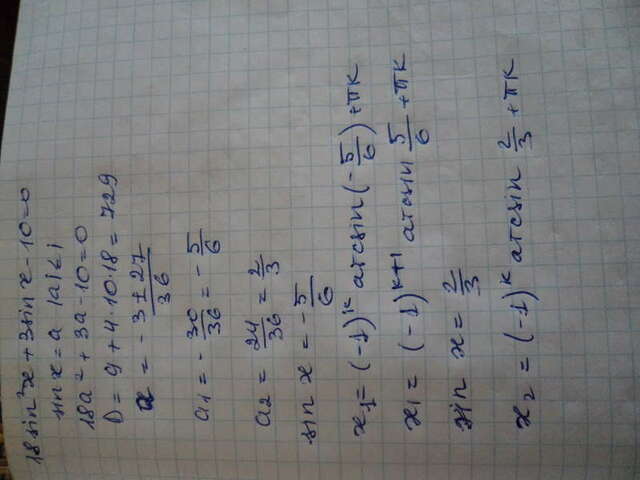 18sin²x+3sin x-10=0
sin x=a |a|≤1
18a²+3a-10=0
D=9+4·10·18=729
a=-3±27/36
a₁=-30/36=-5/6
a₂=24/36=2/3
sin x=-5/6
x₁=(-1)ᵏ arcsin(-5/6)+πk
x₁=(-1)ᵏ⁺¹ arcsin 5/6+πk
sin x=2/3
x₂=(-1)ᵏ arcsin 2/3+πk